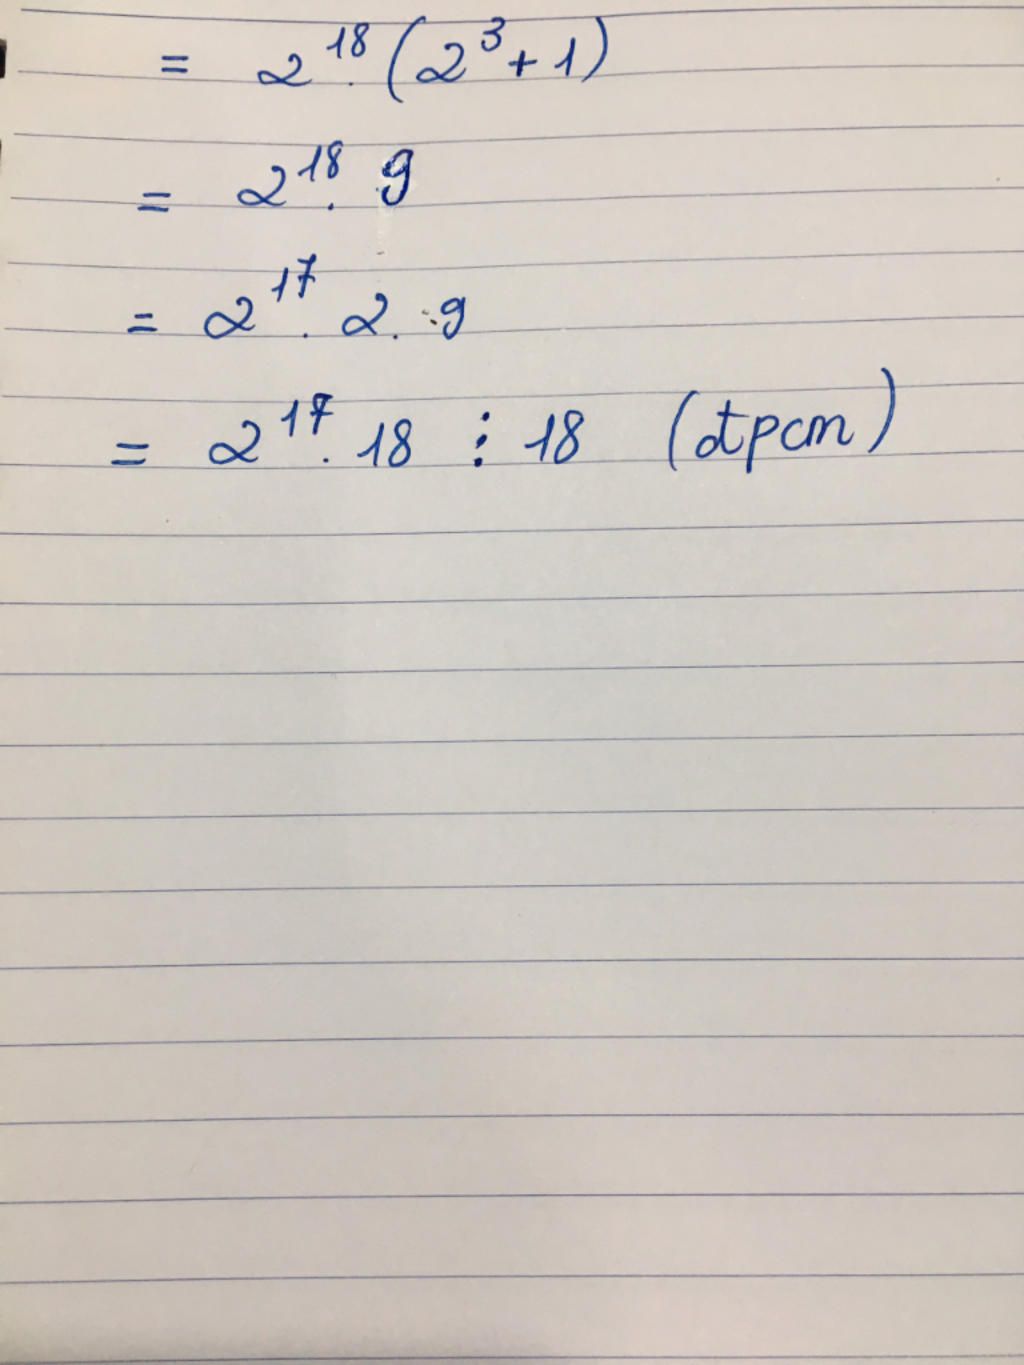 = 2¹⁸.(2³+1)
= 2¹⁸. 9
= 2¹⁷. 2. 9
= 2¹⁷. 18 ⋮ 18 (đpcm)